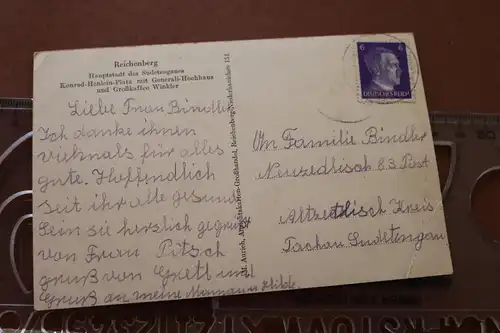 Reichenberg
Hauptstadt des Sudetengaues
Konrad-Henlein-Platz mit Generali-Hochhaus
und Großkaffee Winkler
Liebe Frau Bindler
Ich danke ihnen
vielmals für alles
gute. Hoffendlich
seit ihr alle gesund
Sein sie herslich gegrüßt
von Frau Pitsch
gruß von Gretl und
Gruß an meine Mamma Hilde.
M. Autich, Ansichtskarten-Großhandel, Reichenberg-Niederhanichen 151
6 6
DEUTSCHES REICH
An Familie Bindler
Neuzedlisch 63 Post
Altzedtlisch Kreis
Tachau Sudetengau